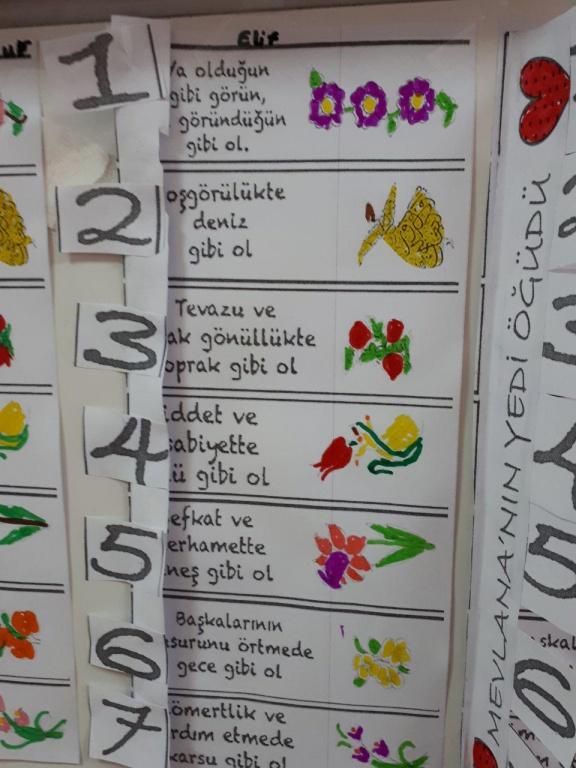 Elif
1
Ya olduğun
gibi görün,
göründüğün
gibi ol.
2
oşgörülükte
deniz
gibi ol
3
Tevazu ve
ak gönüllükte
oprak gibi ol
4
iddet ve
sabiyette
ü gibi ol
5
efkat ve
erhamette
neş gibi ol
6
Başkalarının
usurunu örtmede
gece gibi ol
7
ömertlik ve
rdım etmede
karsu gibi ol
MEVLANA'NIN YEDİ ÖĞÜDÜ
5
skal